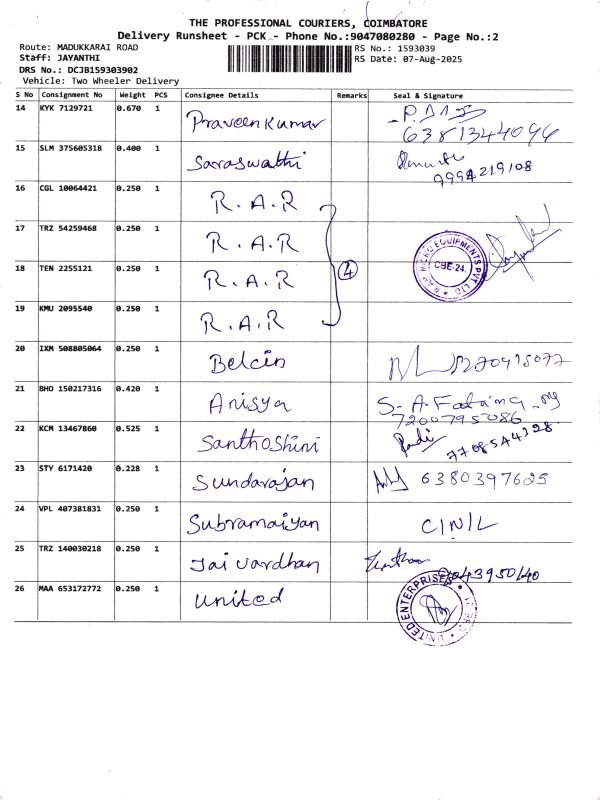 THE PROFESSIONAL COURIERS, COIMBATORE
Delivery Runsheet - PCK - Phone No.:9047080280 - Page No.:2
Route: MADUKKARAI ROAD RS No.: 1593039
Staff: JAYANTHI RS Date: 07-Aug-2025
DRS No.: DCJB159303902
Vehicle: Two Wheeler Delivery
S No Consignment No Weight PCS Consignee Details Remarks Seal & Signature
14 KYK 7129721 0.670 1 Praveen Kumar 6381344094
15 SLM 375605318 0.400 1 Saraswathi 9994219108
16 CGL 10064421 0.250 1 R.A.R
17 TRZ 54259468 0.250 1 R.A.R
18 TEN 2255121 0.250 1 R.A.R 4 CBE-24.
19 KMU 2095540 0.250 1 R.A.R
20 IXM 508805064 0.250 1 Belcin
21 BHO 150217316 0.420 1 Anisya S. A. Fatima
7200795086
22 KCM 13467860 0.525 1 Santhoshini 7708544328
23 STY 6171420 0.228 1 Sundarajan 6380397625
24 VPL 407381831 0.250 1 Subramaiyan
25 TRZ 140030218 0.250 1 Jai vardhan
26 MAA 653172772 0.250 1 United UNITED ENTERPRISES